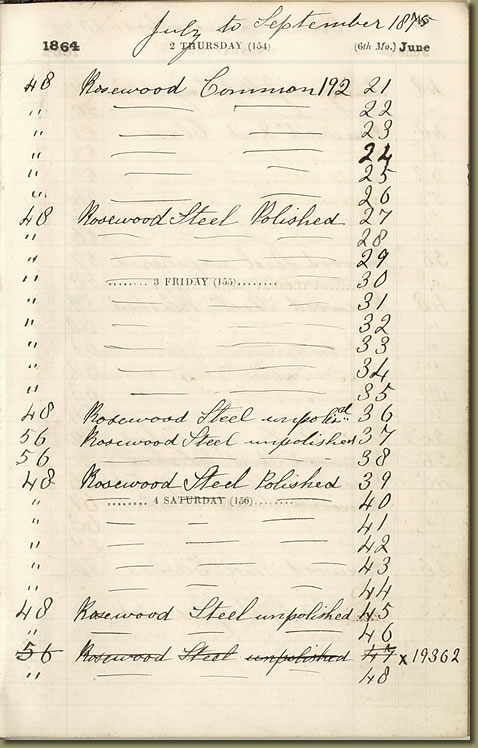 July to September 1875
1864 2 THURSDAY (154) (6th Mo.) June
48 Rosewood Common 192 21
" — — 22
" — — 23
" — — 24
" — — 25
" — — 26
48 Rosewood Steel Polished 27
" — — — 28
" — — — 29
" ........ 3 FRIDAY (155)........ 30
" — — — 31
" — — — 32
" — — — 33
" — — — 34
" — — — 35
48 Rosewood Steel unpolisd 36
56 Rosewood Steel unpolished 37
56 — — — 38
48 Rosewood Steel Polished 39
" ........ 4 SATURDAY (156)........ 40
" — — — 41
" — — — 42
" — — — 43
" — — — 44
48 Rosewood Steel unpolished 45
" — — — 46
56 Rosewood Steel unpolished 47 x 19362
" — — — 48